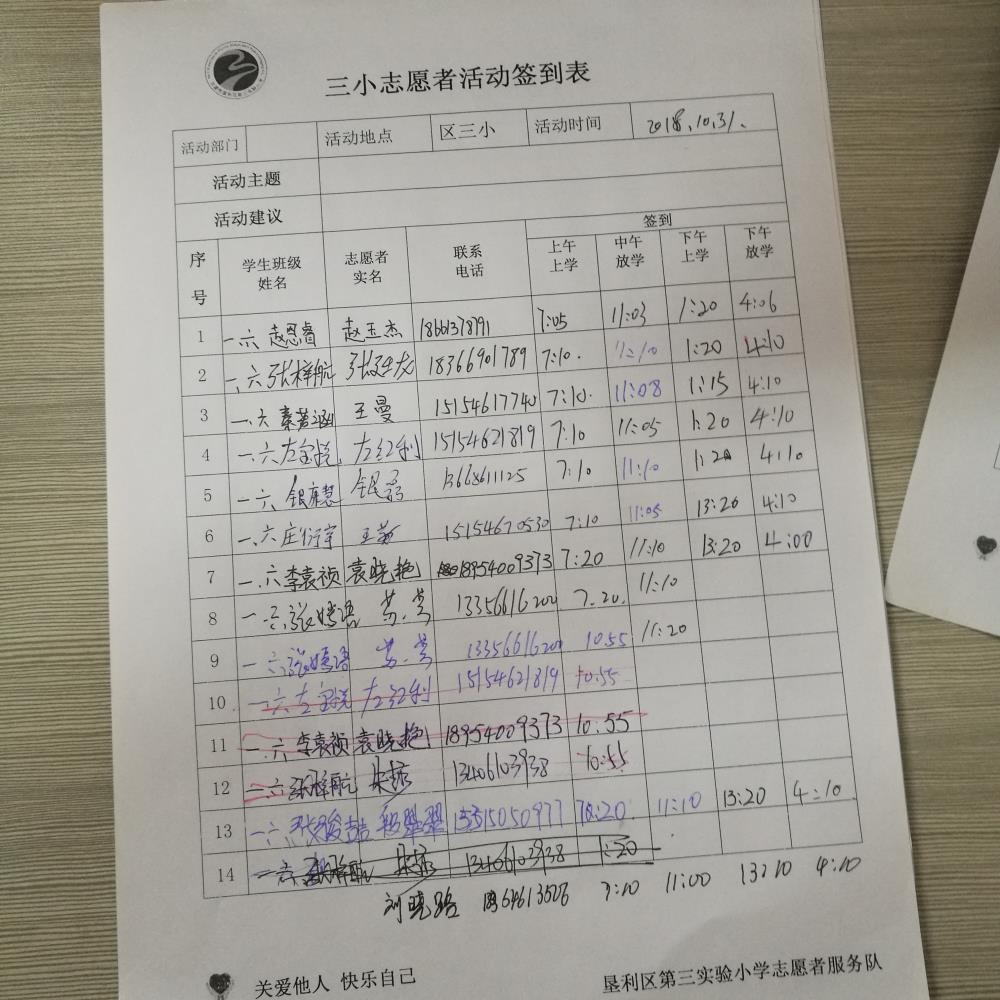 三小志愿者活动签到表
活动部门 活动地点 区三小 活动时间 2018.10.31.
活动主题
活动建议
序号 学生班级姓名 志愿者实名 联系电话 签到
上午上学 中午放学 下午上学 下午放学
1 一.六 赵恩睿 赵玉杰 7:05 11:03 1:20 4:06
2 一.六 张梓航 18366901789 7:10. 11:10 1:20 4:10
3 一.六 王曼 15154617740 7:10. 11:08 1:15 4:10
4 一.六 左宝悦 左红利 15154621819 7:10 11:05 1:20 4:10
5 一六 银 13668611125 7:10 11:10 1:20 4:10
6 一.六 庄衍宇 王 15154670530 7:10 11:05 13:20 4:10
7 一.六 李袁祯 袁晓艳 18954009373 7:20 11:10 13:20 4:00
8 一.六 张嫣语 13356616200 7.20. 11:10
9 一六 张嫣语 13356616200 10:55 11:20
10 一六 左宝悦 左红利 15154621819 10:55
11 一.六 李袁祯 袁晓艳 18954009373 10:55
12 一六 13406103938 10:55
13 一六 11:10 13:20 4:10
14 一六 13406103938 1:20
刘晓路 7:10 11:00 13:10 4:10
关爱他人 快乐自己
垦利区第三实验小学志愿者服务队